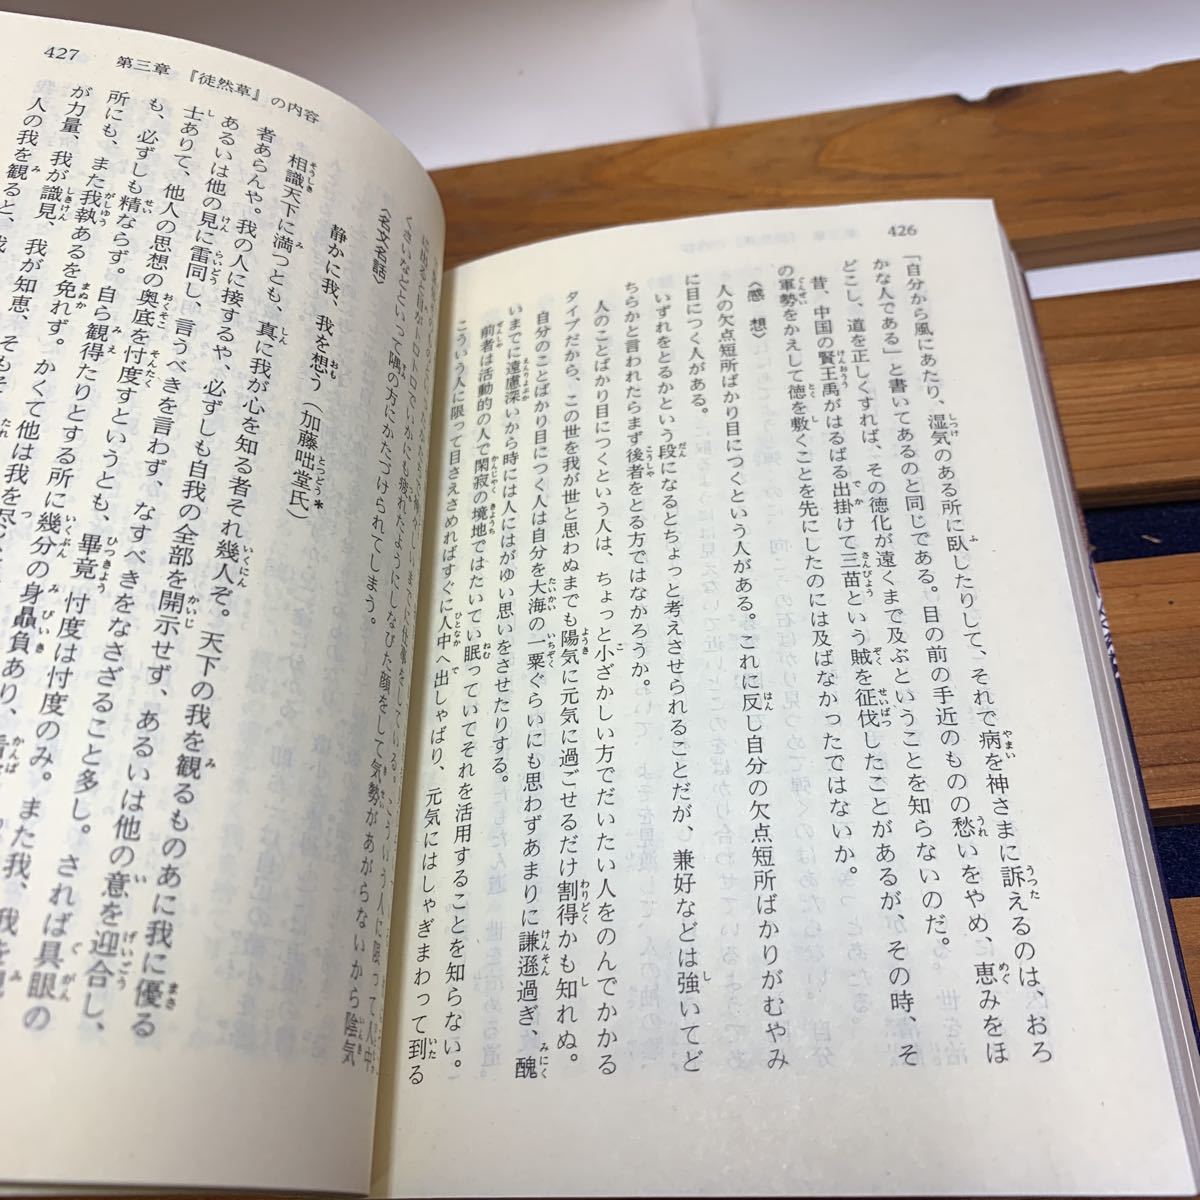 426
「自分から風にあたり、湿気のある所に臥したりして、それで病を神さまに訴えるのは、おろ
かな人である」と書いてあるのと同じである。目の前の手近のものの愁いをやめ、恵みをほ
どこし、道を正しくすれば、その徳化が遠くまで及ぶということを知らないのだ。
昔、中国の賢王禹がはるばる出掛けて三苗という賊を征伐したことがあるが、その時、そ
の軍勢をかえして徳を敷くことを先にしたのには及ばなかったではないか。
〈感 想〉
人の欠点短所ばかり目につくという人がある。これに反し自分の欠点短所ばかりがむやみ
に目につく人がある。
いずれをとるかという段になるとちょっと考えさせられることだが、兼好などは強いてど
ちらかと言われたらまず後者をとる方ではなかろうか。
人のことばかり目につくという人は、ちょっと小ざかしい方でだいたい人をのんでかかる
タイプだから、この世を我が世と思わぬまでも陽気に元気に過ごせるだけ割得かも知れぬ。
自分のことばかり目につく人は自分を大海の一粟ぐらいにも思わずあまりに謙遜過ぎ、醜
いまでに遠慮深いから時には人にはがゆい思いをさせたりする。
前者は活動的の人で閑寂の境地ではたいてい眠っていてそれを活用することを知らない。
こういう人に限って目さえさめればすぐに人中へ出しゃばり、元気にはしゃぎまわって到る
427 第三章 『徒然草』の内容
くさいなどといって隅の方にかたづけられてしまう。
〈名文名話〉
静かに我、我を想う(加藤咄堂氏)*
相識天下に満つとも、真に我が心を知る者それ幾人ぞ。天下の我を観るものあに我に優る
者あらんや。我の人に接するや、必ずしも自我の全部を開示せず、あるいは他の意を迎合し、
あるいは他の見に雷同し、言うべきを言わず、なすべきをなさざること多し。されば具眼の
士ありて、他人の思想の奥底を忖度すというとも、畢竟 忖度は忖度のみ。また我、我を観
も、必ずしも精ならず。自ら観得たりとする所に幾分の身贔負あり、
所にも、また我執あるを免れず。かくて他は我を尽
が力量、我が識見、我が知恵、そもそ
人の我を観ると、我